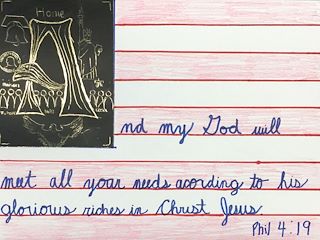 Home
And my God will
meet all your needs acording to his
glorious riches in Christ Jesus.
Phil 4:19